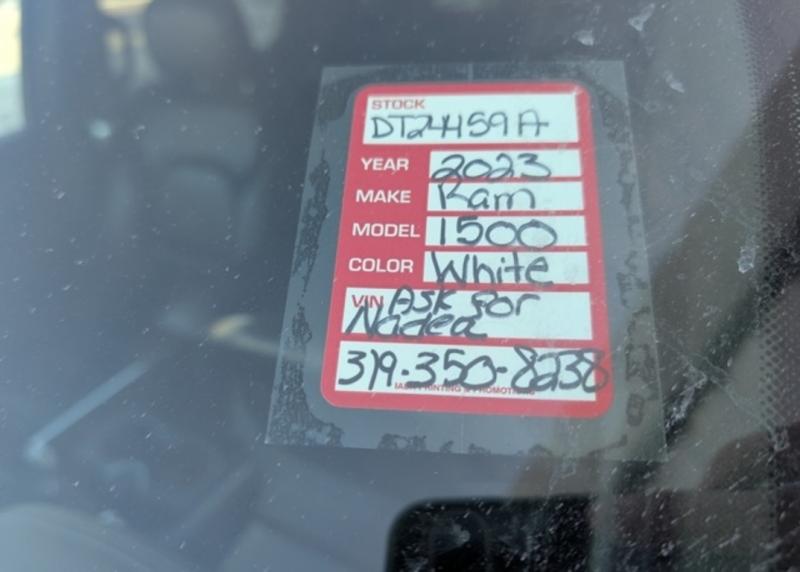 STOCK
DT24159A
YEAR 2023
MAKE Ram
MODEL 1500
COLOR White
VIN Ask for
Nadea
319-350-8238
PRINTING & PROMOTIONS